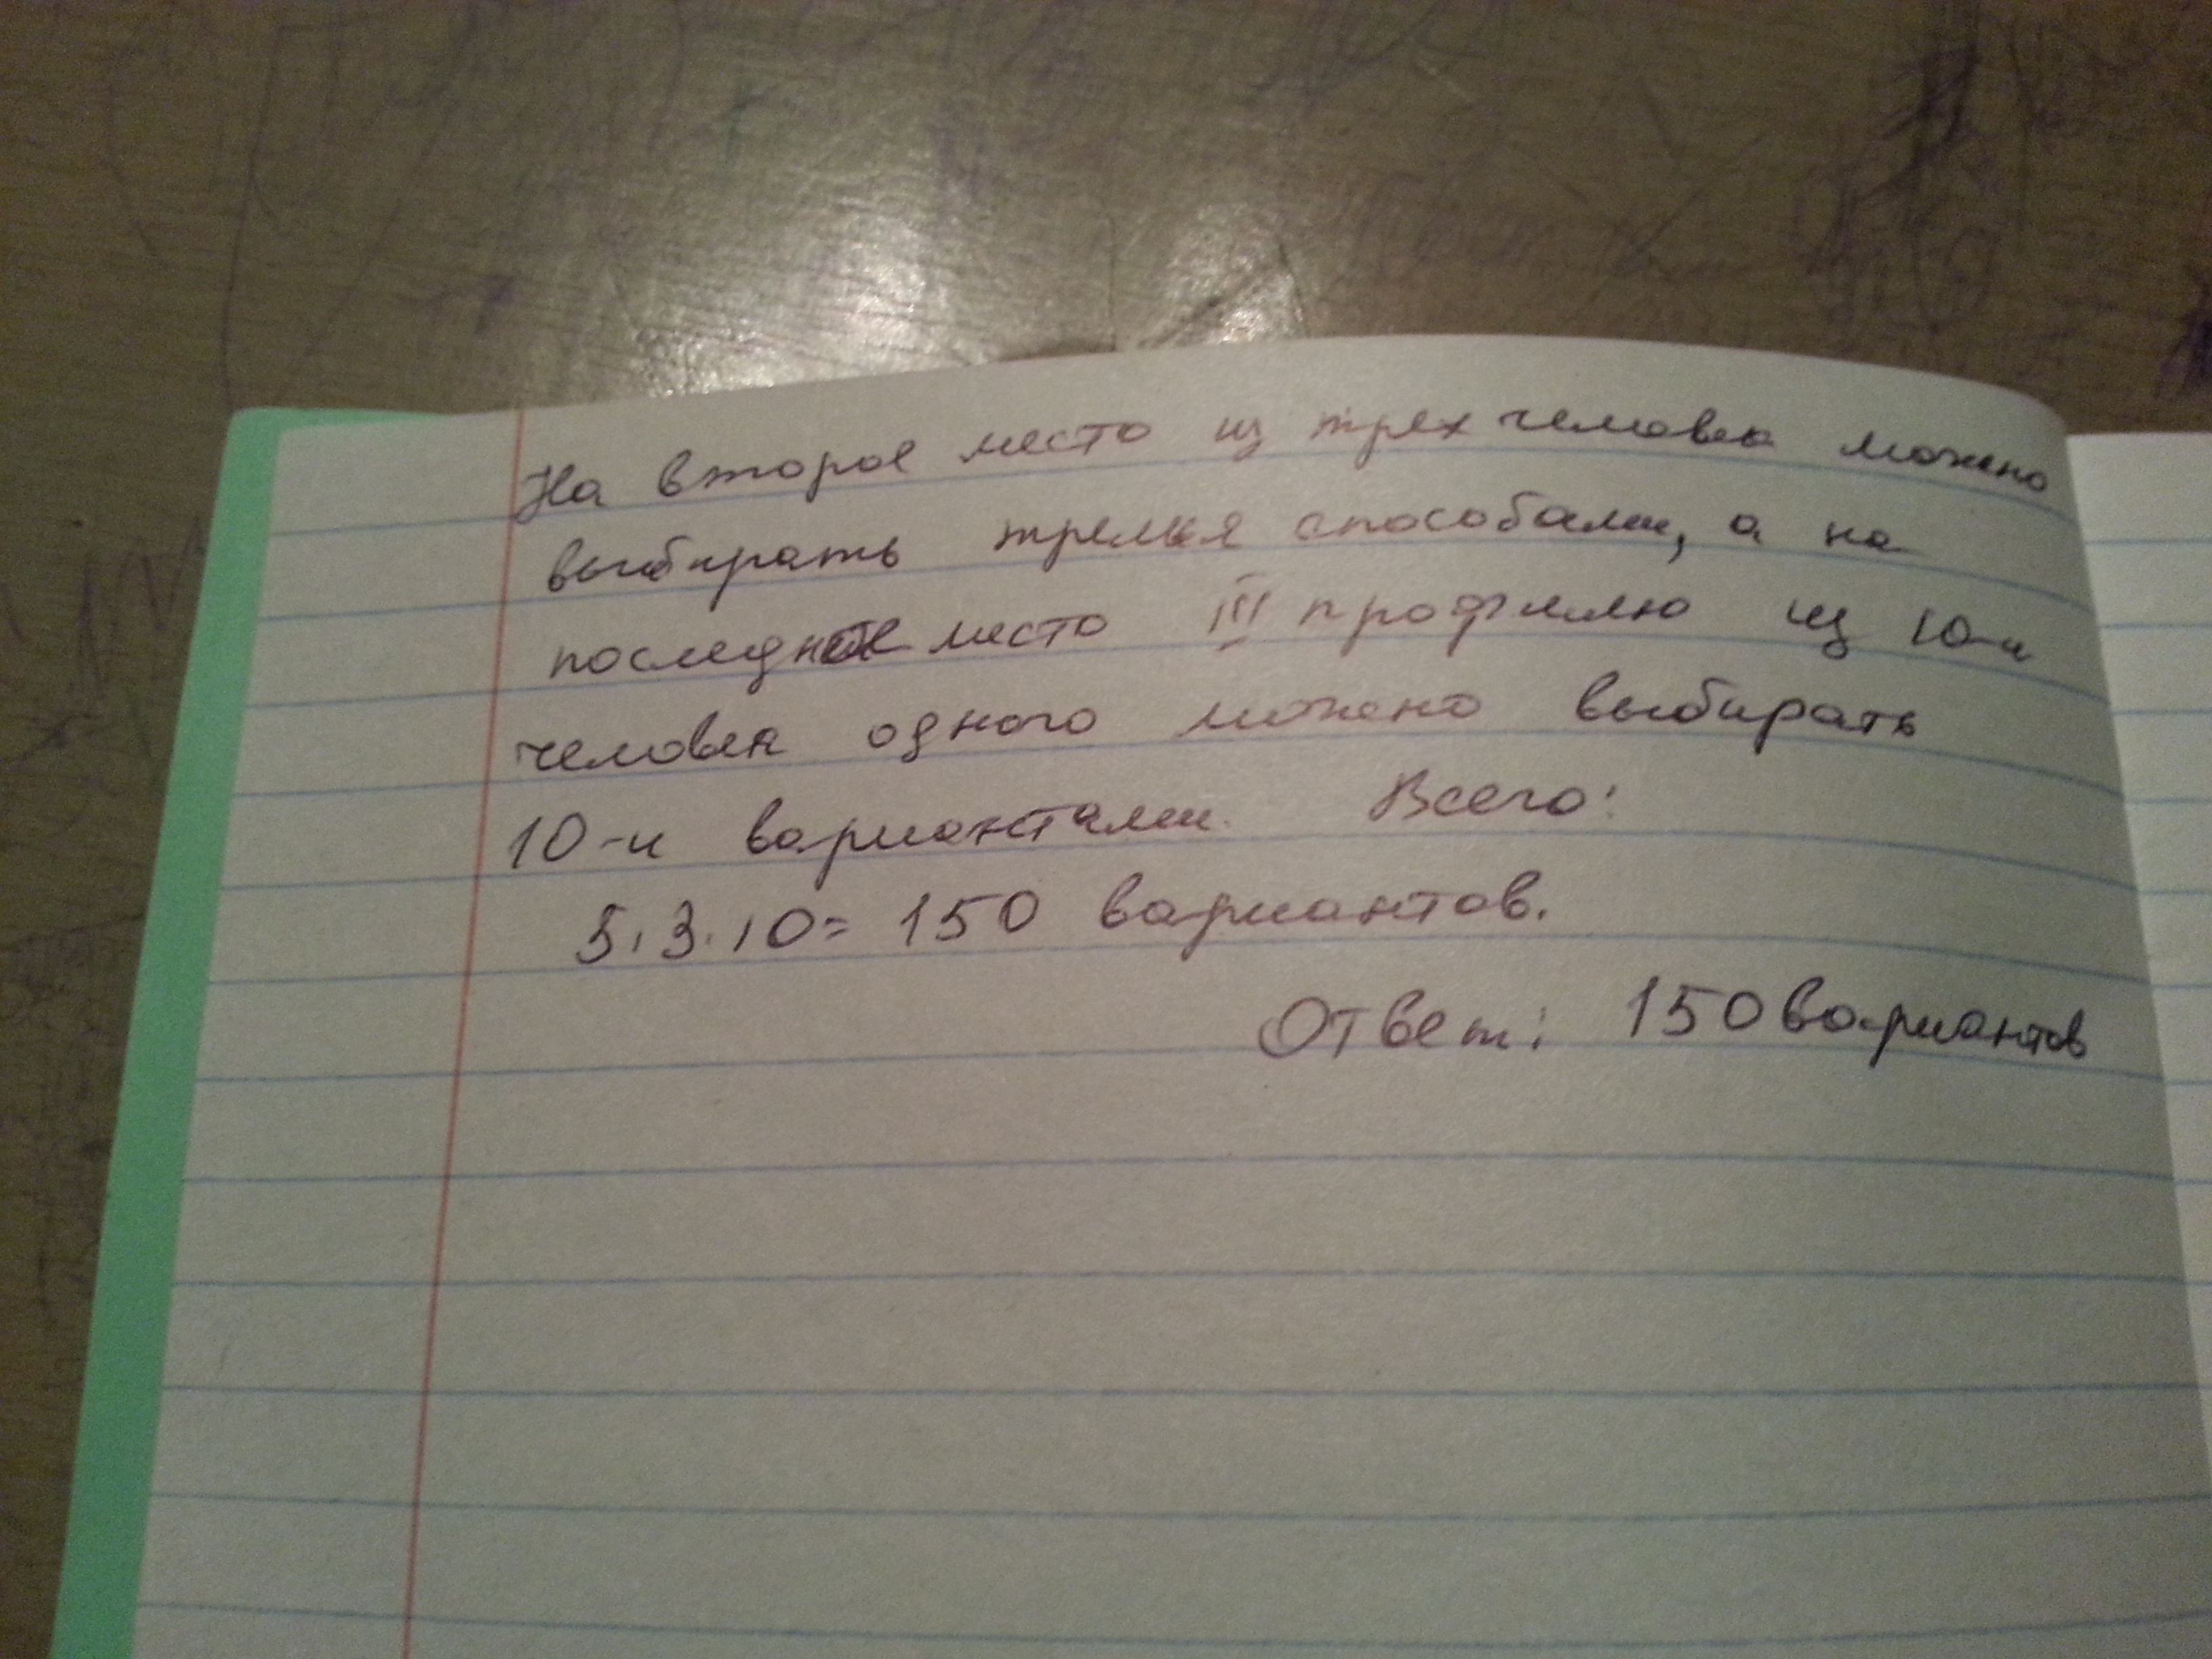 На второе место из трех человек можно
выбирать тремья способами, а на
последнее место III профилю из 10-и
человек одного можно выбирать
10-и вариантами. Всего:
5·3·10= 150 вариантов.
Ответ: 150 вариантов